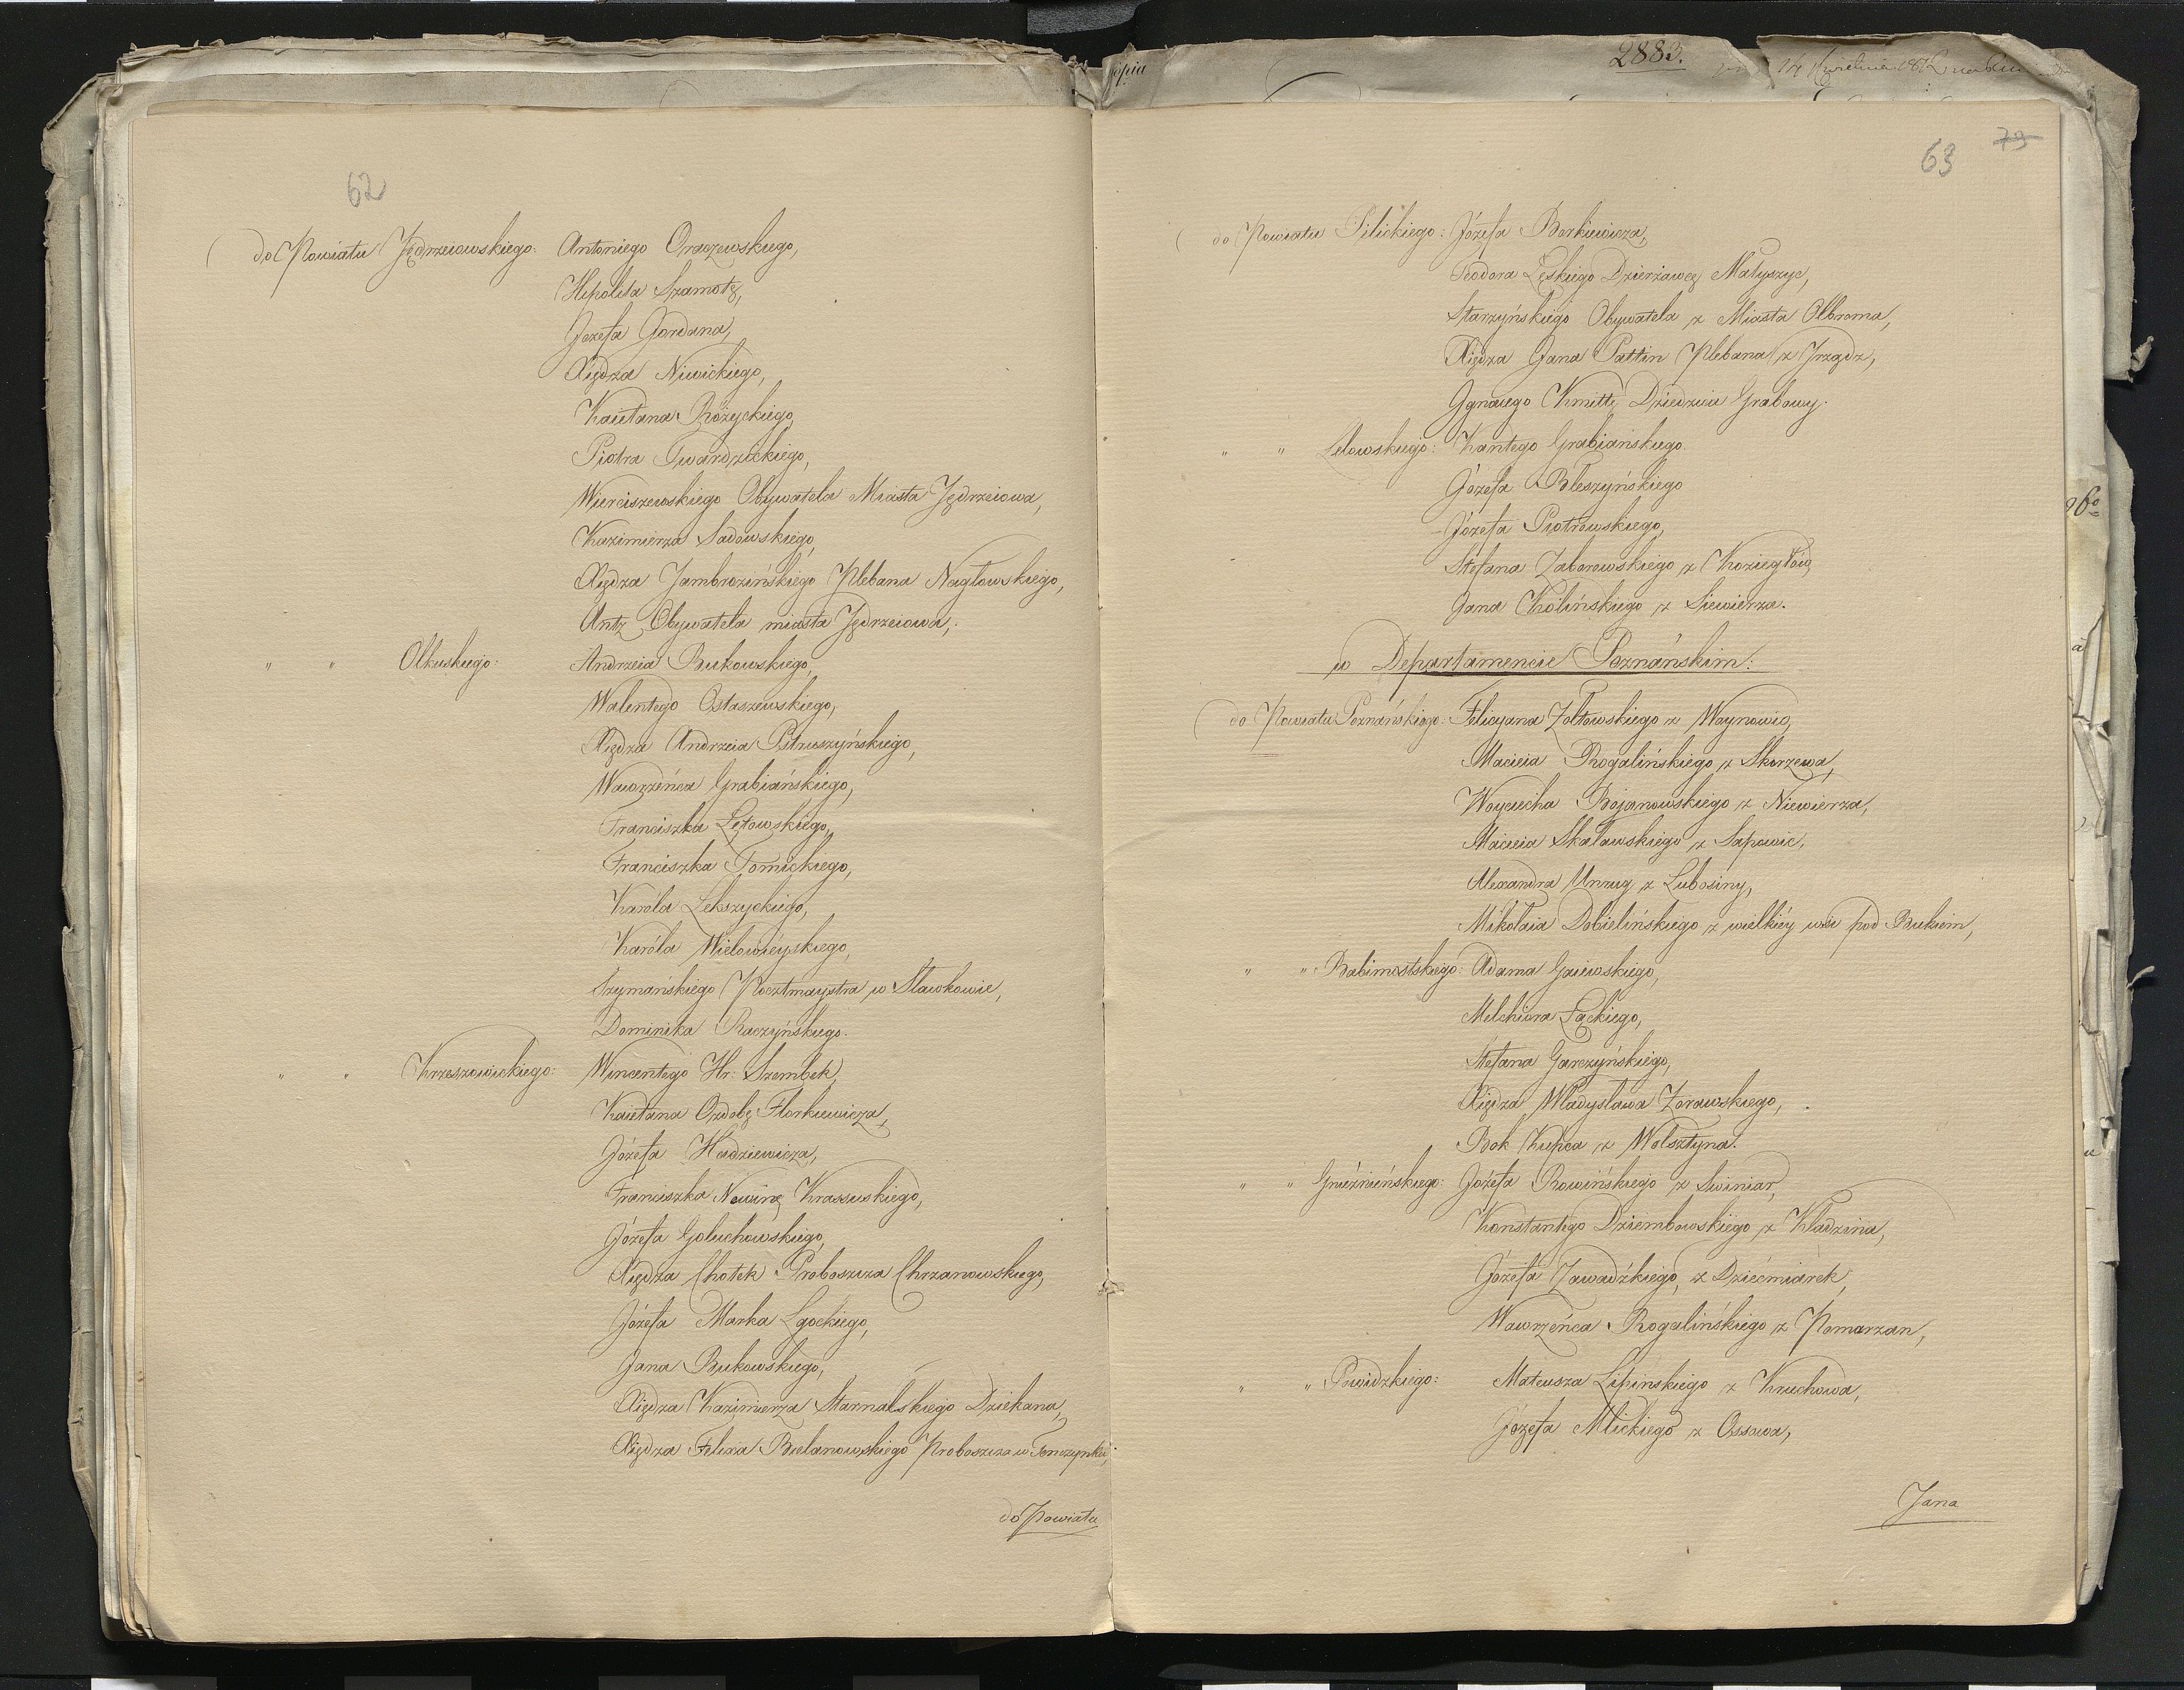 62
do Powiatu Jędrzeiowskiego: Antoniego Oraczewskiego,
Hipolita Szamotę,
Jozefa Gordana,
Xiędza Niwickiego,
Kaietana Rożyckiego,
Piotra Twardzickiego,
Wierciszewskiego Obywatela Miasta Jędrzeiowa,
Kazimierza Sadowskiego,
Xiędza Jambrozińskiego Plebana Nagłowskiego,
Antz Obywatela miasta Jędrzeiowa,.
" " Olkuskiego: Andrzeia Bukowskiego,
Walentego Ostaszewskiego,
Xiędza Andrzeia Pstruszyńskiego,
Wawrzeńca Grabiańskiego,
Franciszka Lętowskiego,
Franciszka Tomickiego,
Karóla Lekszyckiego,
Karóla Wielowieyskiego,
Szymańskiego Pocztmaystra w Sławkowie,
Dominika Raczyńskiego.
" " Krzeszowickiego: Wincentego Hr: Szembek,
Kaietana Ozdobę Florkiewicza,
Józefa Hadziewicza,
Franciszka Nowinę Krassuskiego,
Józefa Goluchowskiego,
Xiędza Chotek Proboszcza Chrzanowskiego,
Józefa Marka Lgockiego,
Jana Bukowskiego,
Xiędza Kazimierza Starnalskiego Dziekana,
Xiędza Felixa Bielanowskiego Proboszcza w Tenczynku,
do Powiatu
2883.
14 Kwietnia
63 73
do Powiatu Pilickiego: Józefa Borkiewicza,
Teodora Łęskiego Dzierżawcę Małyszyc,
Starzyńskiego Obywatela z Miasta Olbroma,
Xiędza Jana Pattin Plebana z Irządz,
Ignacego Kmittę Dziedzica Grabowy.
" " Lelowskiego: Kantego Grabiańskiego
Józefa Bleszyńskiego
Józefa Piotrowskiego,
Stefana Zaborowskiego z Koziegłów,
Jana Kolińskiego z Siewierza.
w Departamencie Poznańskim:
do Powiatu Poznańskiego: Felicyana Żołtowskiego z Woynowic,
Macieia Rogalińskiego z Skorzewa,
Woyciecha Bojanowskiego z Niewierza,
Macieia Skaławskiego z Sapowic,
Alexandra Unrug z Lubosiny,
Mikołaia Dobielińskiego z wielkiéy wsi pod Bukiem,
" " Babimostskiego: Adama Gaiewskiego,
Melchiora Łąckiego,
Stefana Garczyńskiego,
Xiędza Władysława Żorawskiego,
Bok Kupca z Wolsztyna.
" " Gnieźnieńskiego: Józefa Rowińskiego z Swiniar,
Konstantego Dziembowskiego z Kładzina,
Józefa Zawadzkiego, z Dziećmiarek,
Wawrzeńca Rogalińskiego z Pomarzan,
" " Powidzkiego: Mateusza Lipinskiego z Kruchowa,
Józefa Mlickiego z Ossowa,
Jana